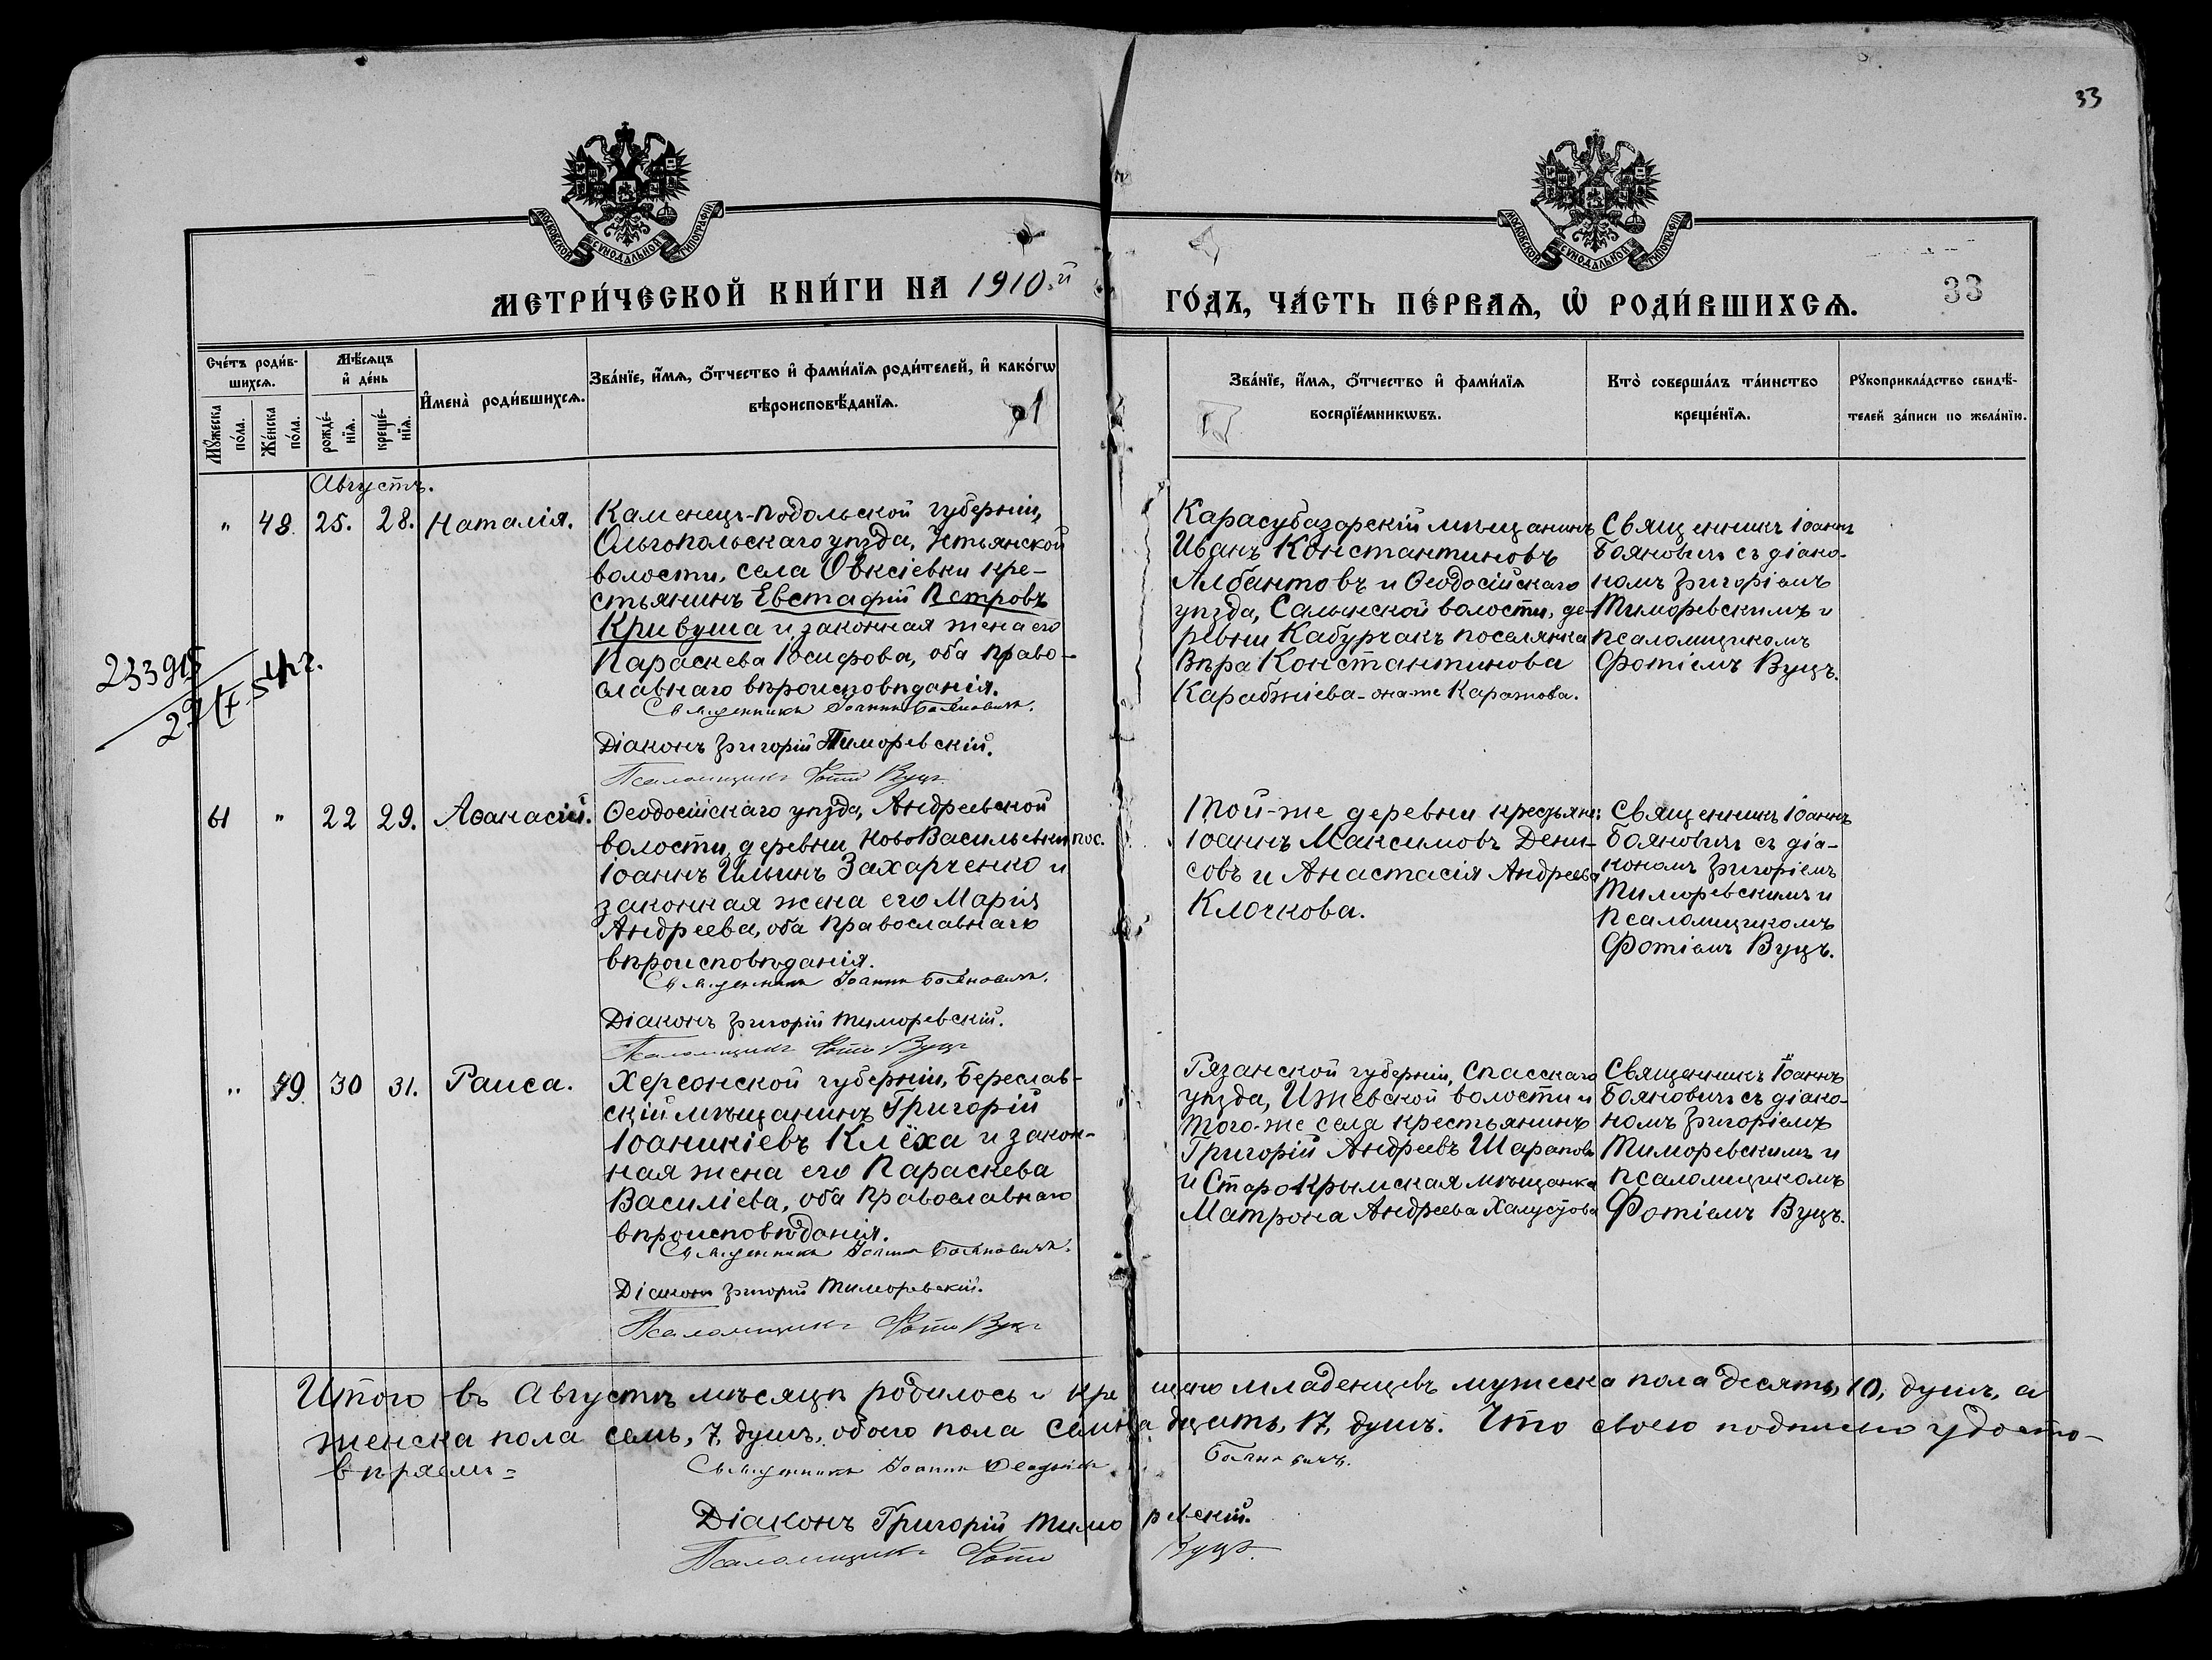 33
МОСКОВСКОЙ СѴНОДАЛЬНОЙ ТИПОГРАФІИ
МОСКОВСКОЙ СѴНОДАЛЬНОЙ ТИПОГРАФІИ
МЕТРИ́ЧЕСКОЙ КНИ́ГИ НА 1910.й
ГО́ДЪ, ЧА́СТЬ ПЕ́РВАѦ, Ѡ҆ РОДИ́ВШИХСѦ.
33
Сче́тъ роди́в-
шихсѧ.
Мꙋ́жеска
по́ла.
Же́нска
по́ла.
Мѣ́сѧцъ
и҆ де́нь
рожде́-
нїѧ.
креще́-
нїѧ.
И҆мена̀ роди́вшихсѧ.
Зва́нїе, и҆́мѧ, ѻ҆́тчество и҆ фами́лїѧ роди́телей, и҆ како́гѡ
вѣроисповѣ́данїѧ.
Зва́нїе, и҆́мѧ, ѻ҆́тчество и҆ фами́лїѧ
воспрїе́мникѡвъ.
Кто̀ соверша́лъ та́инство
креще́нїѧ.
Рꙋкоприкла́дство свидѣ́-
телей за́писи по жела́нїю.
Августъ.
" 48 25. 28. Наталія.
Каменецъ-Подольской губерніи,
Ольгопольскаго уѣзда, Устьянской
волости, села Овксіевки кре-
стьянинъ Евстафій Петровъ
Кривуша и законная жена его
Параскева Іосифова, оба право-
славнаго вѣроисповѣданія.
Священникъ Іоаннъ Бояновичъ.
Діаконъ Григорій Тиморевскій.
Псаломщикъ Фотій Вуцъ
Карасубазарскій мѣщанинъ
Иванъ Константиновъ
Албантовъ и Ѳеодосійскаго
уѣзда, Салынской волости, де-
ревни Кабурчакъ поселянка
Вѣра Константинова
Карабжіева-она-же
Священникъ Іоаннъ
Бояновичъ съ діако-
номъ Григоріемъ
Тиморевскимъ и
псаломщикомъ
Фотіемъ Вуцъ.
61 " 22 29. Аѳанасій.
Ѳеодосійскаго уѣзда, Андреевской
волости, деревни НовоВасильевки пос.
Іоаннъ Ильинъ Захарченко и
законная жена его Марія
Андреева, оба православнаго
вѣроисповѣданія.
Священникъ Іоаннъ Бояновичъ.
Діаконъ Григорій Тиморевскій.
Псаломщикъ Фотій Вуцъ
Той-же деревни крестьяне:
Іоаннъ Максимовъ Дени-
совъ и Анастасія Андреева
Клочкова.
Священникъ Іоаннъ
Бояновичъ съ діа-
кономъ Григоріемъ
Тиморевскимъ и
псаломщикомъ
Фотіемъ Вуцъ.
" 49 30 31. Раиса.
Херсонской губерніи, Береслав-
скій мѣщанинъ Григорій
Іоаникіевъ Клёха и закон-
ная жена его Параскева
Василіева, оба православнаго
вѣроисповѣданія.
Священникъ Іоаннъ Бояновичъ.
Діаконъ Григорій Тиморевскій.
Псаломщикъ Фотій Вуцъ
Рязанской губерніи, Спасскаго
уѣзда, Ижевской волости и
того-же села крестьянинъ
Григорій Андреевъ Шараповъ
и СтароКрымская мѣщанка
Матрона Андреева
Священникъ Іоаннъ
Бояновичъ съ діако-
номъ Григоріемъ
Тиморевскимъ и
псаломщикомъ
Фотіемъ Вуцъ.
Итого въ Августѣ мѣсяцѣ родилось и крещено младенцевъ мужеска пола десять, 10, душъ, а
женска пола семь, 7, душъ, обоего пола семнадцать, 17, душъ. Что своею подписью удосто-
вѣряемъ=
Священникъ Іоаннъ Бояновичъ.
Діаконъ Григорій Тиморевскій.
Псаломщикъ Фотій Вуцъ.